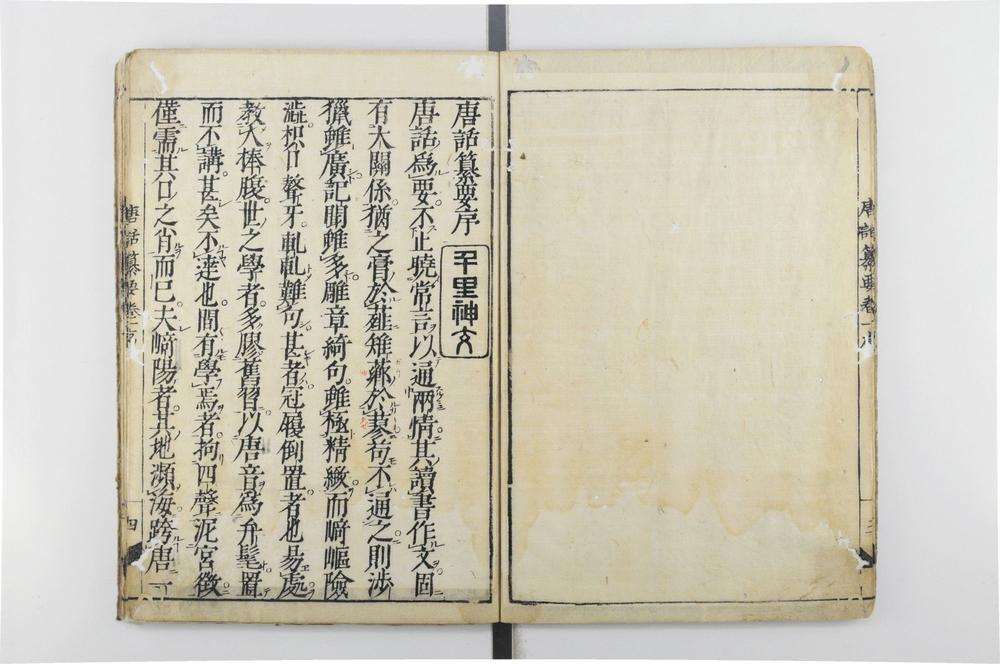 唐話纂要序
千里神交
唐話爲要不止曉常言以通兩情其讀書作文固
有大關係猶之膏於薤雉薌於蓼苟不通之則涉
獵雖廣記聞雖多雕章綺句雖極精緻而崎嶇險
澁枳口聱牙軋軋難句甚者冠履倒置者也易處
教人棒腹世之學者多膠舊習以唐音爲弁髦置
而不講甚矣不達也間有學焉者拘四聲泥宮徵
僅需其口之肖而已夫崎陽者其地瀕海跨唐一
唐話纂要卷一序
四
唐話纂要卷一序